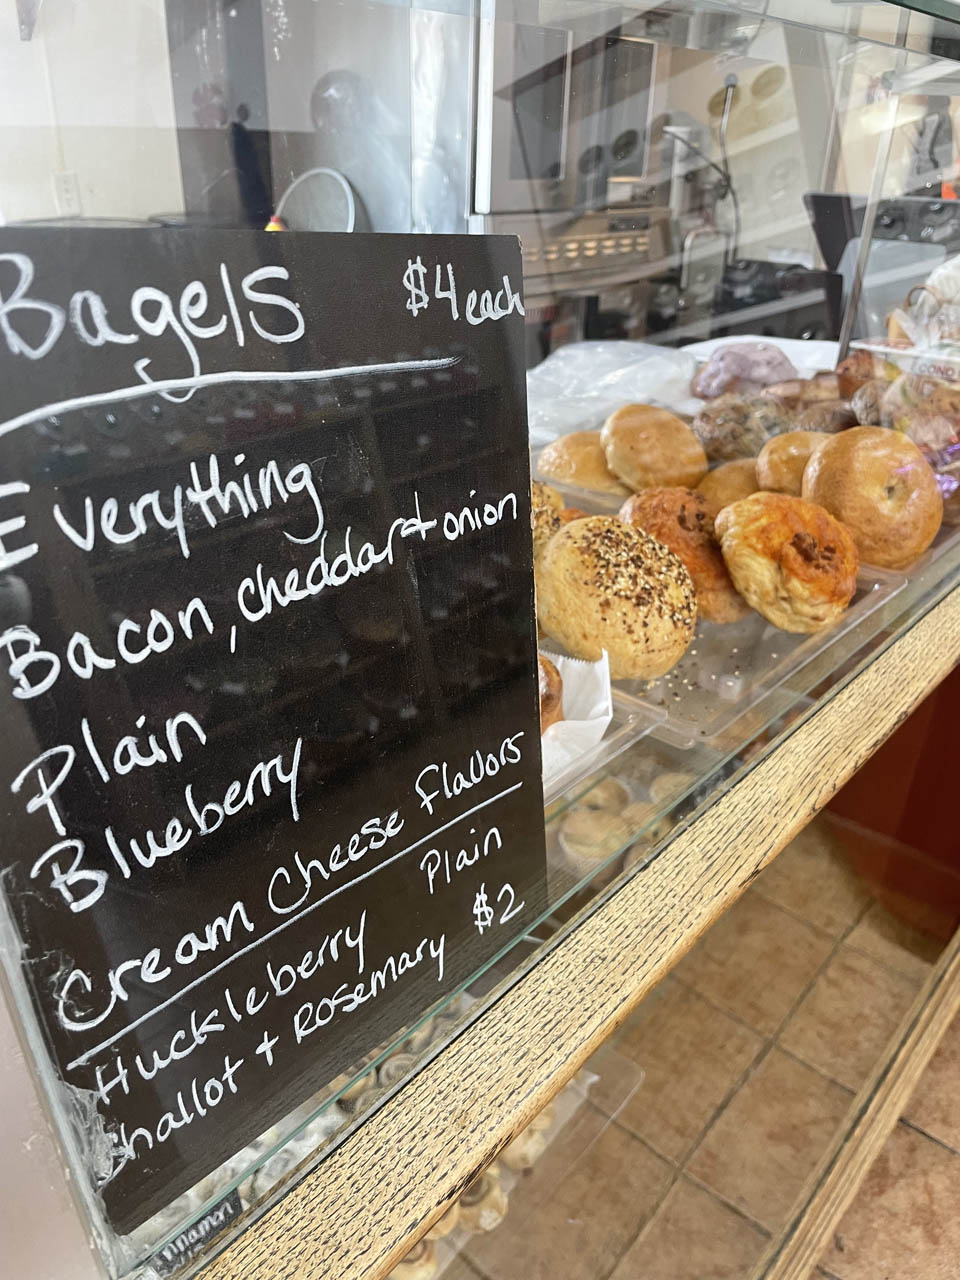 Bagels $4 each
Everything
Bacon, cheddar + onion
Plain
Blueberry
Cream Cheese Flavors
Huckleberry Plain
Shallot + Rosemary $2